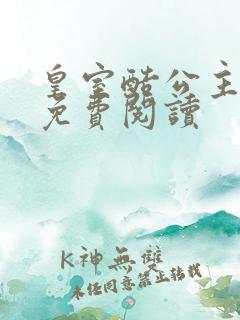 皇室酷公主
免費閱讀
K神無雙
未經同意禁止轉載